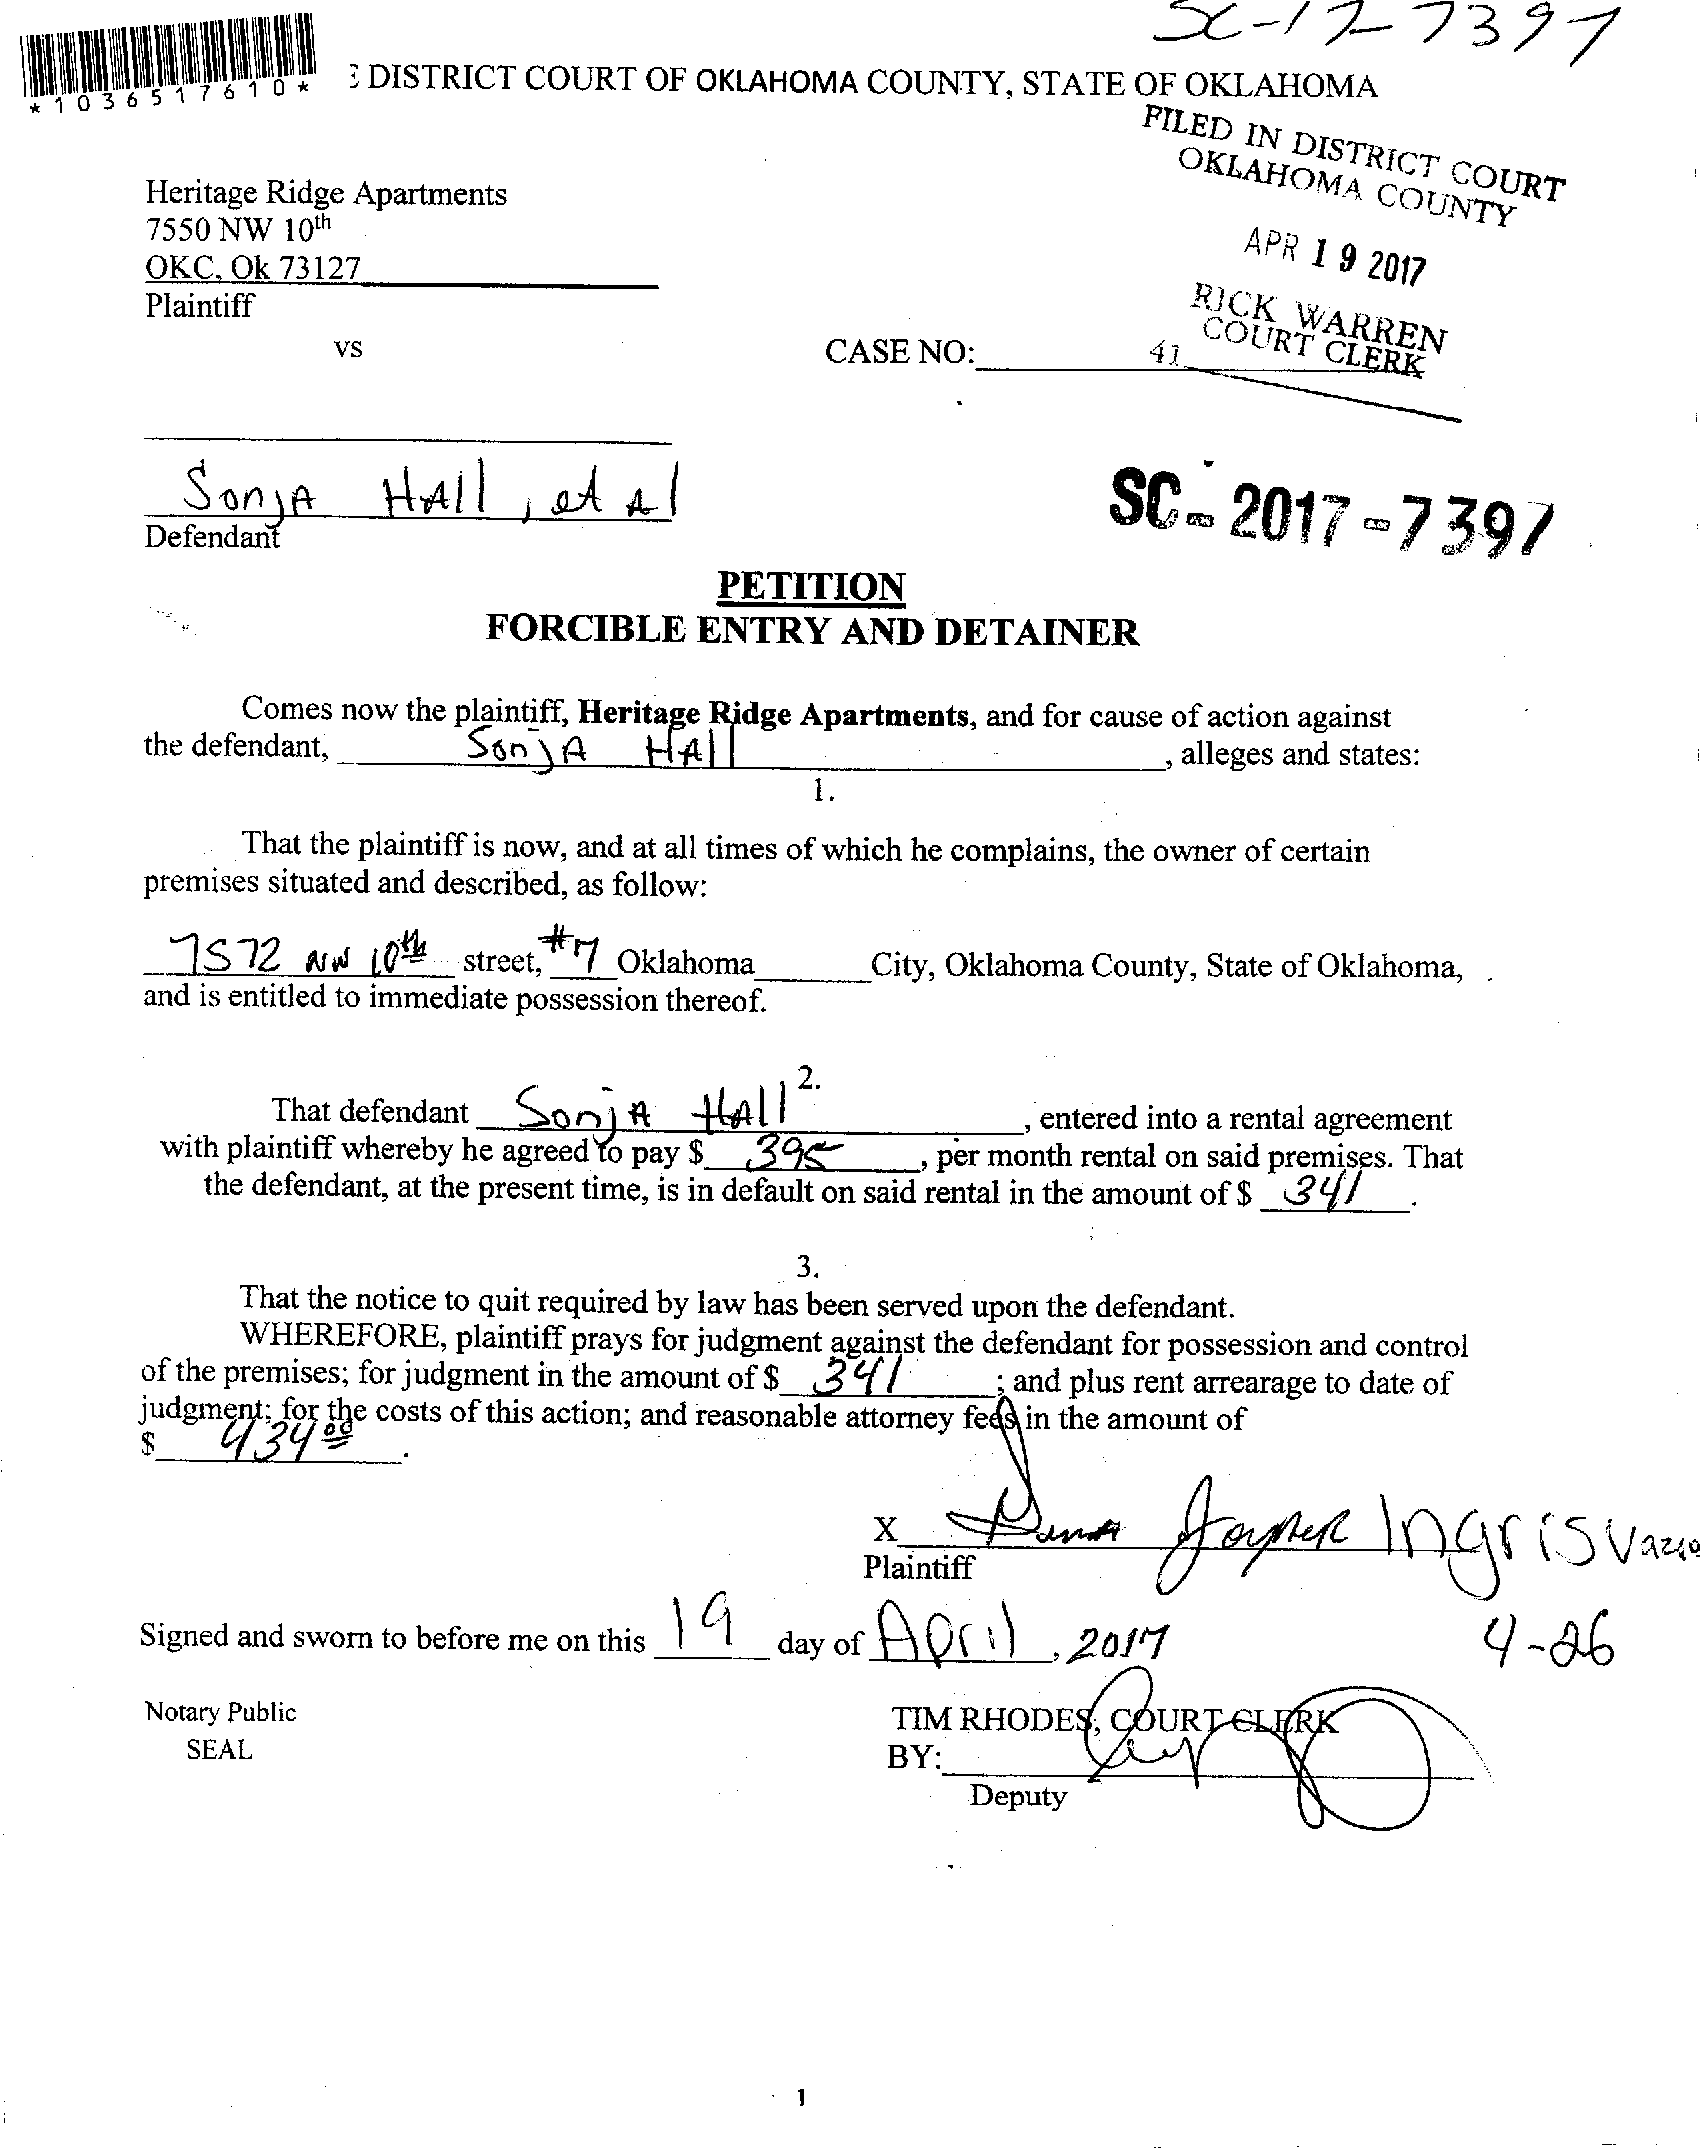 SC-17-7397
*1036517610*
DISTRICT COURT OF OKLAHOMA COUNTY, STATE OF OKLAHOMA
FILED IN DISTRICT COURT
OKLAHOMA COUNTY
Heritage Ridge Apartments
7550 NW 10th
APR 19 2017
OKC, Ok 73127
Plaintiff
RICK WARREN
COURT CLERK
vs
CASE NO:
41
Sonja Hall, et al
Defendant
SC-2017-7397
PETITION
FORCIBLE ENTRY AND DETAINER
Comes now the plaintiff, Heritage Ridge Apartments, and for cause of action against
the defendant, Sonja Hall, alleges and states:
1.
That the plaintiff is now, and at all times of which he complains, the owner of certain
premises situated and described, as follow:
7572 NW 10th street, #7 Oklahoma City, Oklahoma County, State of Oklahoma,
and is entitled to immediate possession thereof.
2.
That defendant Sonja Hall, entered into a rental agreement
with plaintiff whereby he agreed to pay $ 395, per month rental on said premises. That
the defendant, at the present time, is in default on said rental in the amount of $ 341.
3.
That the notice to quit required by law has been served upon the defendant.
WHEREFORE, plaintiff prays for judgment against the defendant for possession and control
of the premises; for judgment in the amount of $ 341; and plus rent arrearage to date of
judgment; for the costs of this action; and reasonable attorney fees in the amount of
$ 434 00.
X
Plaintiff
Signed and sworn to before me on this 19 day of April, 2017
4-26
Notary Public
SEAL
TIM RHODES, COURT CLERK
BY:
Deputy
1